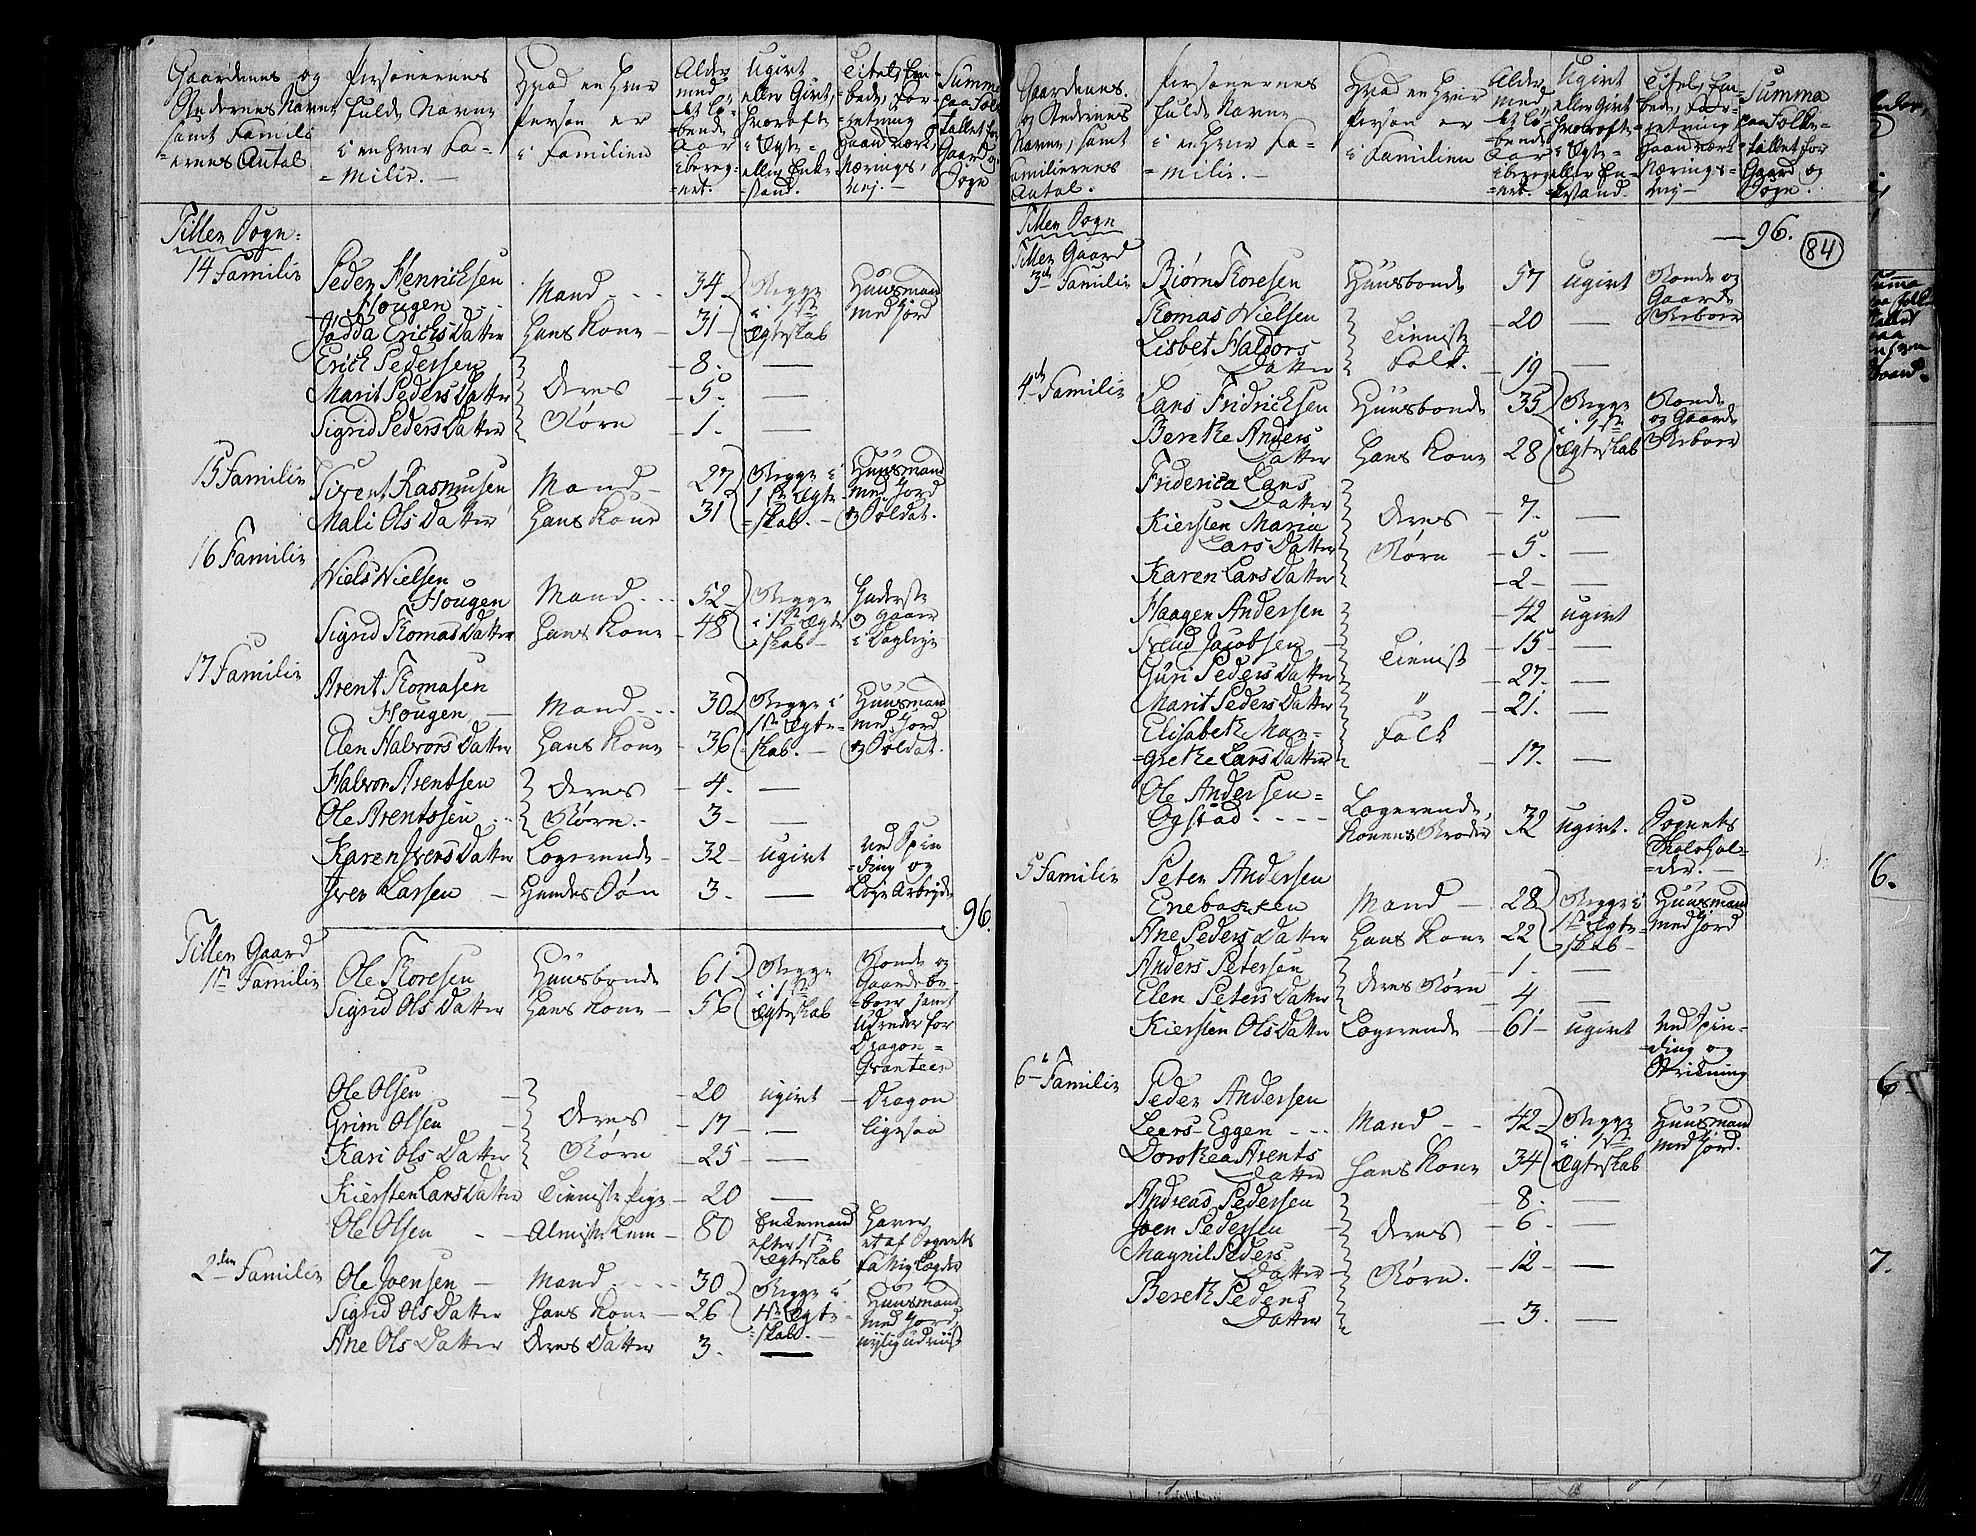 Gaardenes og Stedernes Navne samt Familiernes Antal
Personernes fulde Navne i en hver Familie.
Hvad en hver Person er i Familien
Alder med det løbende Aar iberegnet.
Ugivt eller Givt, hvorofte i Ægte- eller Enkestand.
Titel, Embede, Forretning Haandværk, Nærings Vej.
Summa paa Folketallet for Gaard og Sogn
Tiller Sogn:
14 Familie
Peder Henrichsen Hougen Mand 34 Begge i 1ste Ægteskab Huusmand med Jord
Jadda Erichs Datter Hans Kone 31
Erich Pedersen Deres Børn 8. —
Marit Peders Datter 5. —
Sigrid Peders Datter 1. —
15 Familie
Sivert Rasmusen Mand 27 Begge i 1ste Ægteskab. Huusmand med Jord og Soldat.
Mali Ols Datter Hans Kone 31
16 Familie
Niels Nielsen Hougen Mand 52 Begge i 1ste Ægteskab Inderste og gaaer i Dagleje
Sigrid Tomas Datter Hans Kone 48
17 Familie
Arent Tomasen Hougen Mand 30 Begge i 1ste Ægteskab. Huusmand med Jord og Soldat.
Elen Halvors Datter Hans Kone 36
Halvor Arentsen Deres Børn. 4. —
Ole Arentssen 3 —
Karen Ivers Datter Logerende 32 ugivt ved Spinding og Leje Arbejde
Iver Larsen Hendes Søn 3. —
96.
Tiller Gaard
1ste Familie
Ole Toresen Huusbonde 61 Begge i 1ste Ægteskab Bonde og Gaardebeboer samt Udreder for Dragon-Qvarteer
Sigrid Ols Datter Hans Kone 56
Ole Olsen Deres Børn 20 ugivt Dragon
Grim Olsen 17 — ligesaa
Kari Ols Datter 25 —
Kiersten Lars Datter Tieniste Pige 20 —
Ole Olsen Almisse Lem 80 Enkemand efter 1ste Ægteskab Haver et af Sognets Fattig Lægder
2den Familie
Ole Joensen Mand 30 Begge i 1ste Ægteskab. Huusmand med Jord, nylig udviist
Sigrid Ols Datter Hans Kone 26
Ane Ols Datter Deres Datter 3. —
Gaardenes og Stedernes Navne, samt Familiernes Antal.
Personernes fulde Navne i en hver Familie.
Hvad en hver Person er i Familien
Alder med det løbende Aar iberegnet.
Ugivt eller Givt hvorofte i Ægte- eller Enkestand.
Titel, Embede, Forretning Haandværk Nærings-Vej
Summa paa Folketallet for Gaard og Sogn.
Tiller Sogn
96. 84
Tiller Gaard
3de Familie
Biørn Toresen Huusbonde 57 ugivt Bonde og Gaarde Beboer
Tomas Nielsen Tieniste Folk. 20 —
Lisbet Haldors Datter 19 —
4de Familie
Lars Fridrichsen Huusbonde 35 Begge i 1ste Ægteskab Bonde og Gaarde Beboer
Berethe Anders Datter Hans Kone 28
Friderica Lars Datter Deres Børn 7. —
Kiersten Maria Lars Datter 5. —
Karen Lars Datter 2 —
Haagen Andersen Tieniste Folk 42 ugivt
Svend Jacobsen 15 —
Guri Peders Datter 27. —
Marit Peders Datter 21. —
Elisabeth Margrethe Lars Datter 17. —
Ole Andersen Ogstad Logerende, Konens Broder 32 ugivt. Sognets Skoleholder.
5 Familie
Peter Andersen Enebakken Mand 28 Begge i 1ste Ægteskab Huusmand med Jord
Ane Peders Datter Hans Kone 22
Anders Petersen Deres Børn 1. —
Elen Peters Datter 4 —
Kiersten Ols Datter Logerende 61 ugivt ved Spinding og Strikning
6te Familie
Peder Andersen Leers-Eggen Mand 42 Begge i 1ste Ægteskab Huusmand med Jord.
Dorothea Arents Datter Hans Kone 34
Andreas Pedersen Deres Børn. 8. —
Joen Pedersen 6 —
Magnil Peders Datter 12 —
Bereth Peders Datter 3. —
6.
6
7.